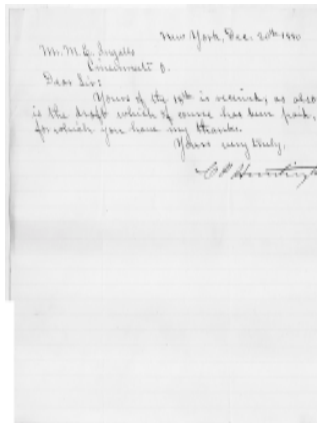 New York, Dec. 20th 1880
Mr. M. E. Ingalls
Cincinnati O.
Dear Sir:
Yours of the 18th is received, as also
is the draft which of course has been paid,
for which you have my thanks.
Yours very truly,
C P Huntingt